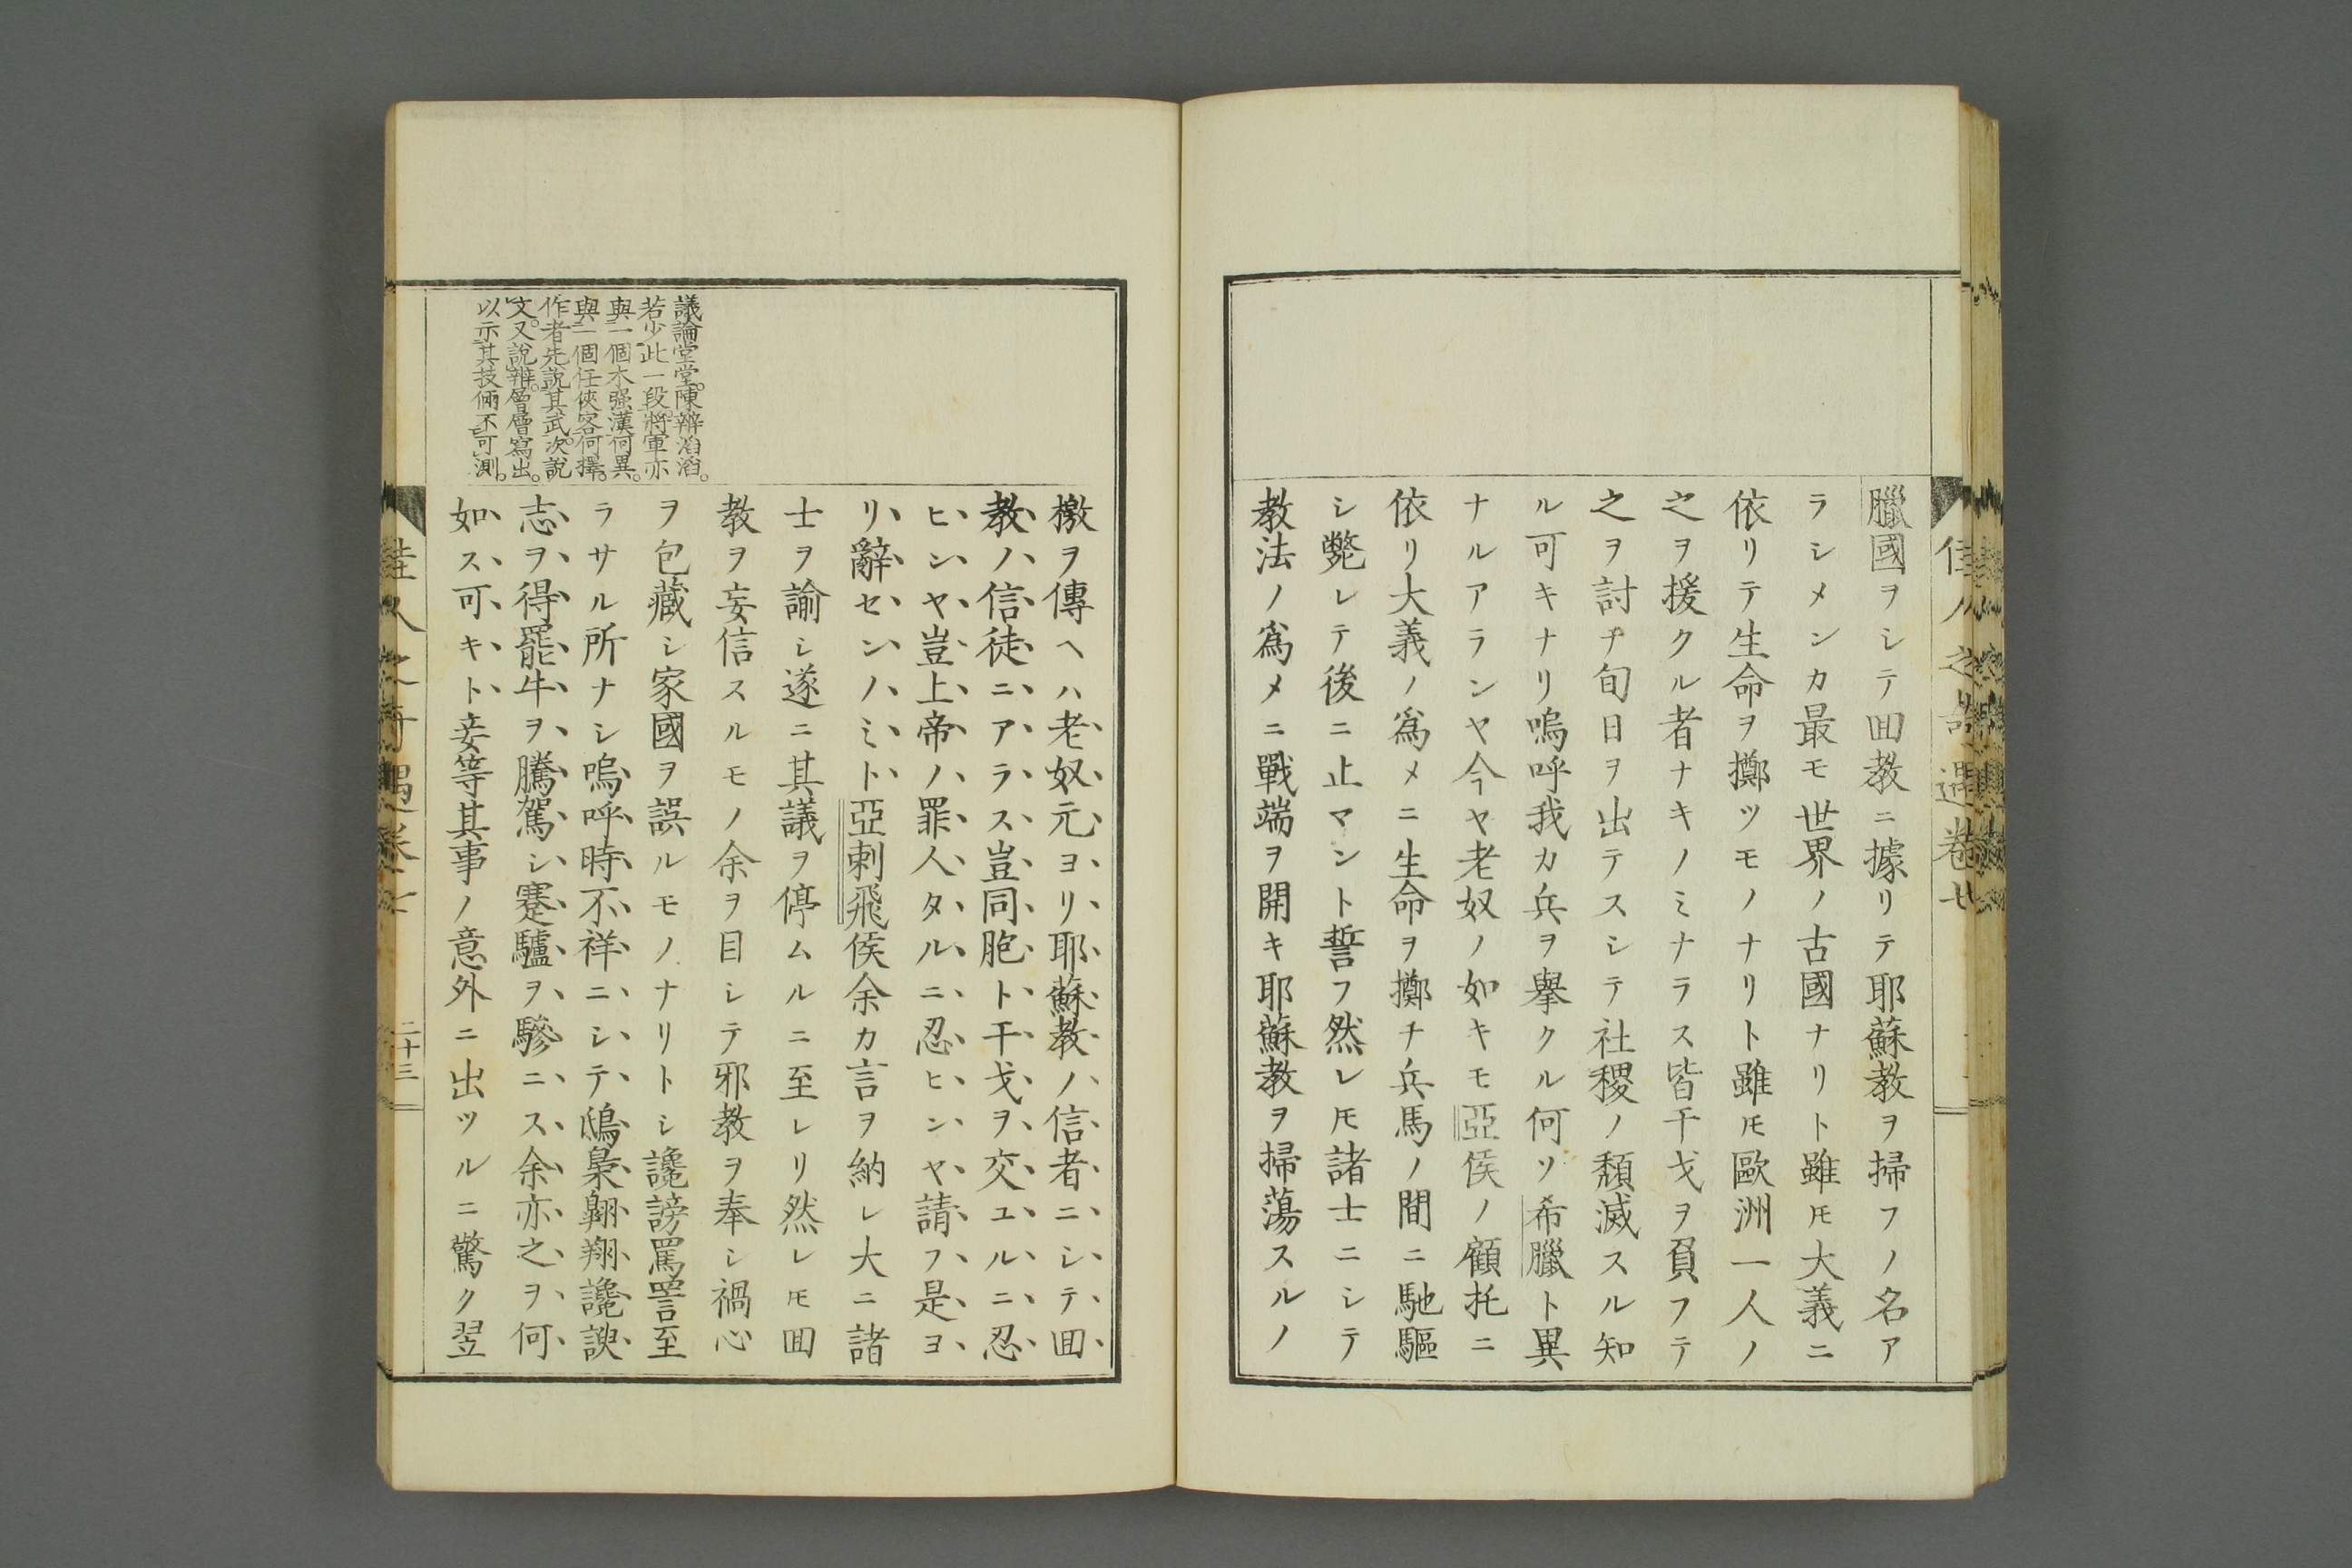 臘國ヲシテ回教ニ據リテ耶蘇教ヲ掃フノ名ア
ラシメンカ最モ世界ノ古國ナリト雖𪜈大義ニ
依リテ生命ヲ擲ツモノナリト雖𪜈歐洲一人ノ
之ヲ援クル者ナキノミナラス皆干戈ヲ負フテ
之ヲ討チ旬日ヲ出テスシテ社稷ノ頽滅スル知
ル可キナリ嗚呼我カ兵ヲ擧クル何ソ希臘ト異
ナルアランヤ今ヤ老奴ノ如キモ亞侯ノ顧托ニ
依リ大義ノ爲メニ生命ヲ擲チ兵馬ノ間ニ馳驅
シ斃レテ後ニ止マント誓フ然レ𪜈諸士ニシテ
教法ノ爲メニ戰端ヲ開キ耶蘇教ヲ掃蕩スルノ
議論堂堂。陳辯滔滔。
若少此一段。將軍亦
與一個木强漢何異。
與一個任俠客何擇。
作者先說其武。次說
文。又說辯。層層寫出。
以示其技倆不可測。
檄ヲ傳ヘハ老奴元ヨリ耶蘇教ノ信者ニシテ回
教ノ信徒ニアラス豈同胞ト干戈ヲ交ユルニ忍
ヒンヤ豈上帝ノ罪人タルニ忍ヒンヤ請フ是ヨ
リ辭センノミト亞剌飛侯余カ言ヲ納レ大ニ諸
士ヲ諭シ遂ニ其議ヲ停ムルニ至レリ然レ𪜈回
教ヲ妄信スルモノ余ヲ目シテ邪教ヲ奉シ禍心
ヲ包藏シ家國ヲ誤ルモノナリトシ讒謗罵詈至
ラサル所ナシ嗚呼時不祥ニシテ鴟梟翺翔讒諛
志ヲ得罷牛ヲ騰駕シ蹇驢ヲ驂ニス余亦之ヲ何
如ス可キト妾等其事ノ意外ニ出ツルニ驚ク翌
佳人之奇遇卷七
二十三